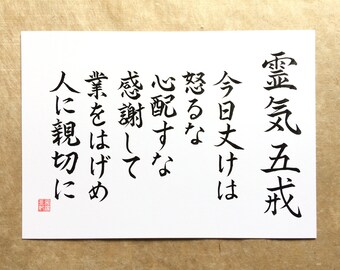 霊気五戒
今日丈けは
怒るな
心配すな
感謝して
業をはげめ
人に親切に